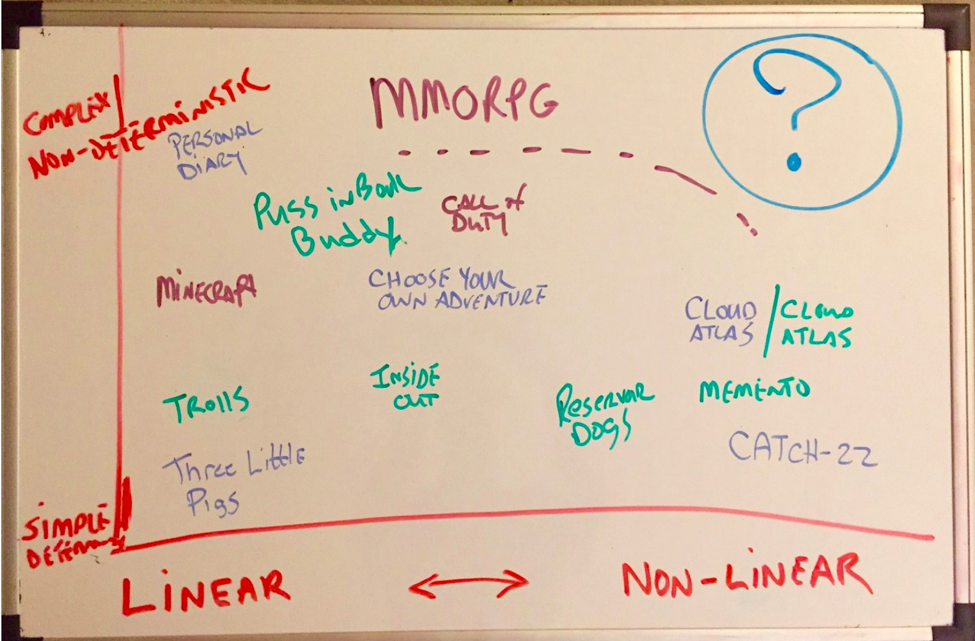 COMPLEX/
NON-DETERMINISTIC
MMORPG
?
PERSONAL
DIARY
Puss in Book
Buddy.
CALL of
DUTY
MINECRAFT
CHOOSE YOUR
OWN ADVENTURE
CLOUD
ATLAS
/ CLOUD
ATLAS
TROLLS
INSIDE
OUT
RESERVOIR
DOGS
MEMENTO
CATCH-22
Three Little
Pigs
SIMPLE
LINEAR
NON-LINEAR